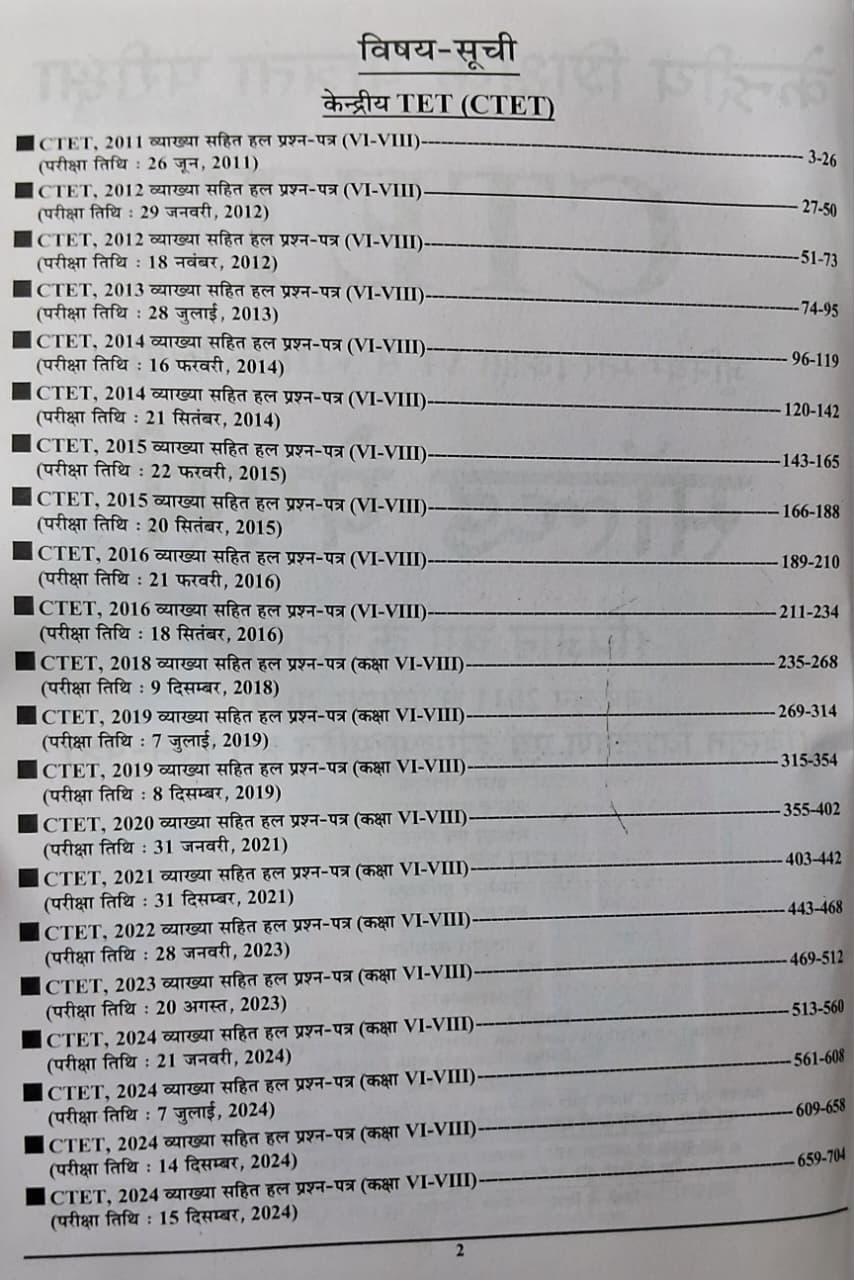 विषय-सूची
केन्द्रीय TET (CTET)
■ CTET, 2011 व्याख्या सहित हल प्रश्न-पत्र (VI-VIII)---3-26
(परीक्षा तिथि : 26 जून, 2011)
■ CTET, 2012 व्याख्या सहित हल प्रश्न-पत्र (VI-VIII)---27-50
(परीक्षा तिथि : 29 जनवरी, 2012)
■ CTET, 2012 व्याख्या सहित हल प्रश्न-पत्र (VI-VIII)---51-73
(परीक्षा तिथि : 18 नवंबर, 2012)
■ CTET, 2013 व्याख्या सहित हल प्रश्न-पत्र (VI-VIII)---74-95
(परीक्षा तिथि : 28 जुलाई, 2013)
■ CTET, 2014 व्याख्या सहित हल प्रश्न-पत्र (VI-VIII)---96-119
(परीक्षा तिथि : 16 फरवरी, 2014)
■ CTET, 2014 व्याख्या सहित हल प्रश्न-पत्र (VI-VIII)---120-142
(परीक्षा तिथि : 21 सितंबर, 2014)
■ CTET, 2015 व्याख्या सहित हल प्रश्न-पत्र (VI-VIII)---143-165
(परीक्षा तिथि : 22 फरवरी, 2015)
■ CTET, 2015 व्याख्या सहित हल प्रश्न-पत्र (VI-VIII)---166-188
(परीक्षा तिथि : 20 सितंबर, 2015)
■ CTET, 2016 व्याख्या सहित हल प्रश्न-पत्र (VI-VIII)---189-210
(परीक्षा तिथि : 21 फरवरी, 2016)
■ CTET, 2016 व्याख्या सहित हल प्रश्न-पत्र (VI-VIII)---211-234
(परीक्षा तिथि : 18 सितंबर, 2016)
■ CTET, 2018 व्याख्या सहित हल प्रश्न-पत्र (कक्षा VI-VIII)---235-268
(परीक्षा तिथि : 9 दिसम्बर, 2018)
■ CTET, 2019 व्याख्या सहित हल प्रश्न-पत्र (कक्षा VI-VIII)---269-314
(परीक्षा तिथि : 7 जुलाई, 2019)
■ CTET, 2019 व्याख्या सहित हल प्रश्न-पत्र (कक्षा VI-VIII)---315-354
(परीक्षा तिथि : 8 दिसम्बर, 2019)
■ CTET, 2020 व्याख्या सहित हल प्रश्न-पत्र (कक्षा VI-VIII)---355-402
(परीक्षा तिथि : 31 जनवरी, 2021)
■ CTET, 2021 व्याख्या सहित हल प्रश्न-पत्र (कक्षा VI-VIII)---403-442
(परीक्षा तिथि : 31 दिसम्बर, 2021)
■ CTET, 2022 व्याख्या सहित हल प्रश्न-पत्र (कक्षा VI-VIII)---443-468
(परीक्षा तिथि : 28 जनवरी, 2023)
■ CTET, 2023 व्याख्या सहित हल प्रश्न-पत्र (कक्षा VI-VIII)---469-512
(परीक्षा तिथि : 20 अगस्त, 2023)
■ CTET, 2024 व्याख्या सहित हल प्रश्न-पत्र (कक्षा VI-VIII)---513-560
(परीक्षा तिथि : 21 जनवरी, 2024)
■ CTET, 2024 व्याख्या सहित हल प्रश्न-पत्र (कक्षा VI-VIII)---561-608
(परीक्षा तिथि : 7 जुलाई, 2024)
■ CTET, 2024 व्याख्या सहित हल प्रश्न-पत्र (कक्षा VI-VIII)---609-658
(परीक्षा तिथि : 14 दिसम्बर, 2024)
■ CTET, 2024 व्याख्या सहित हल प्रश्न-पत्र (कक्षा VI-VIII)---659-704
(परीक्षा तिथि : 15 दिसम्बर, 2024)
2